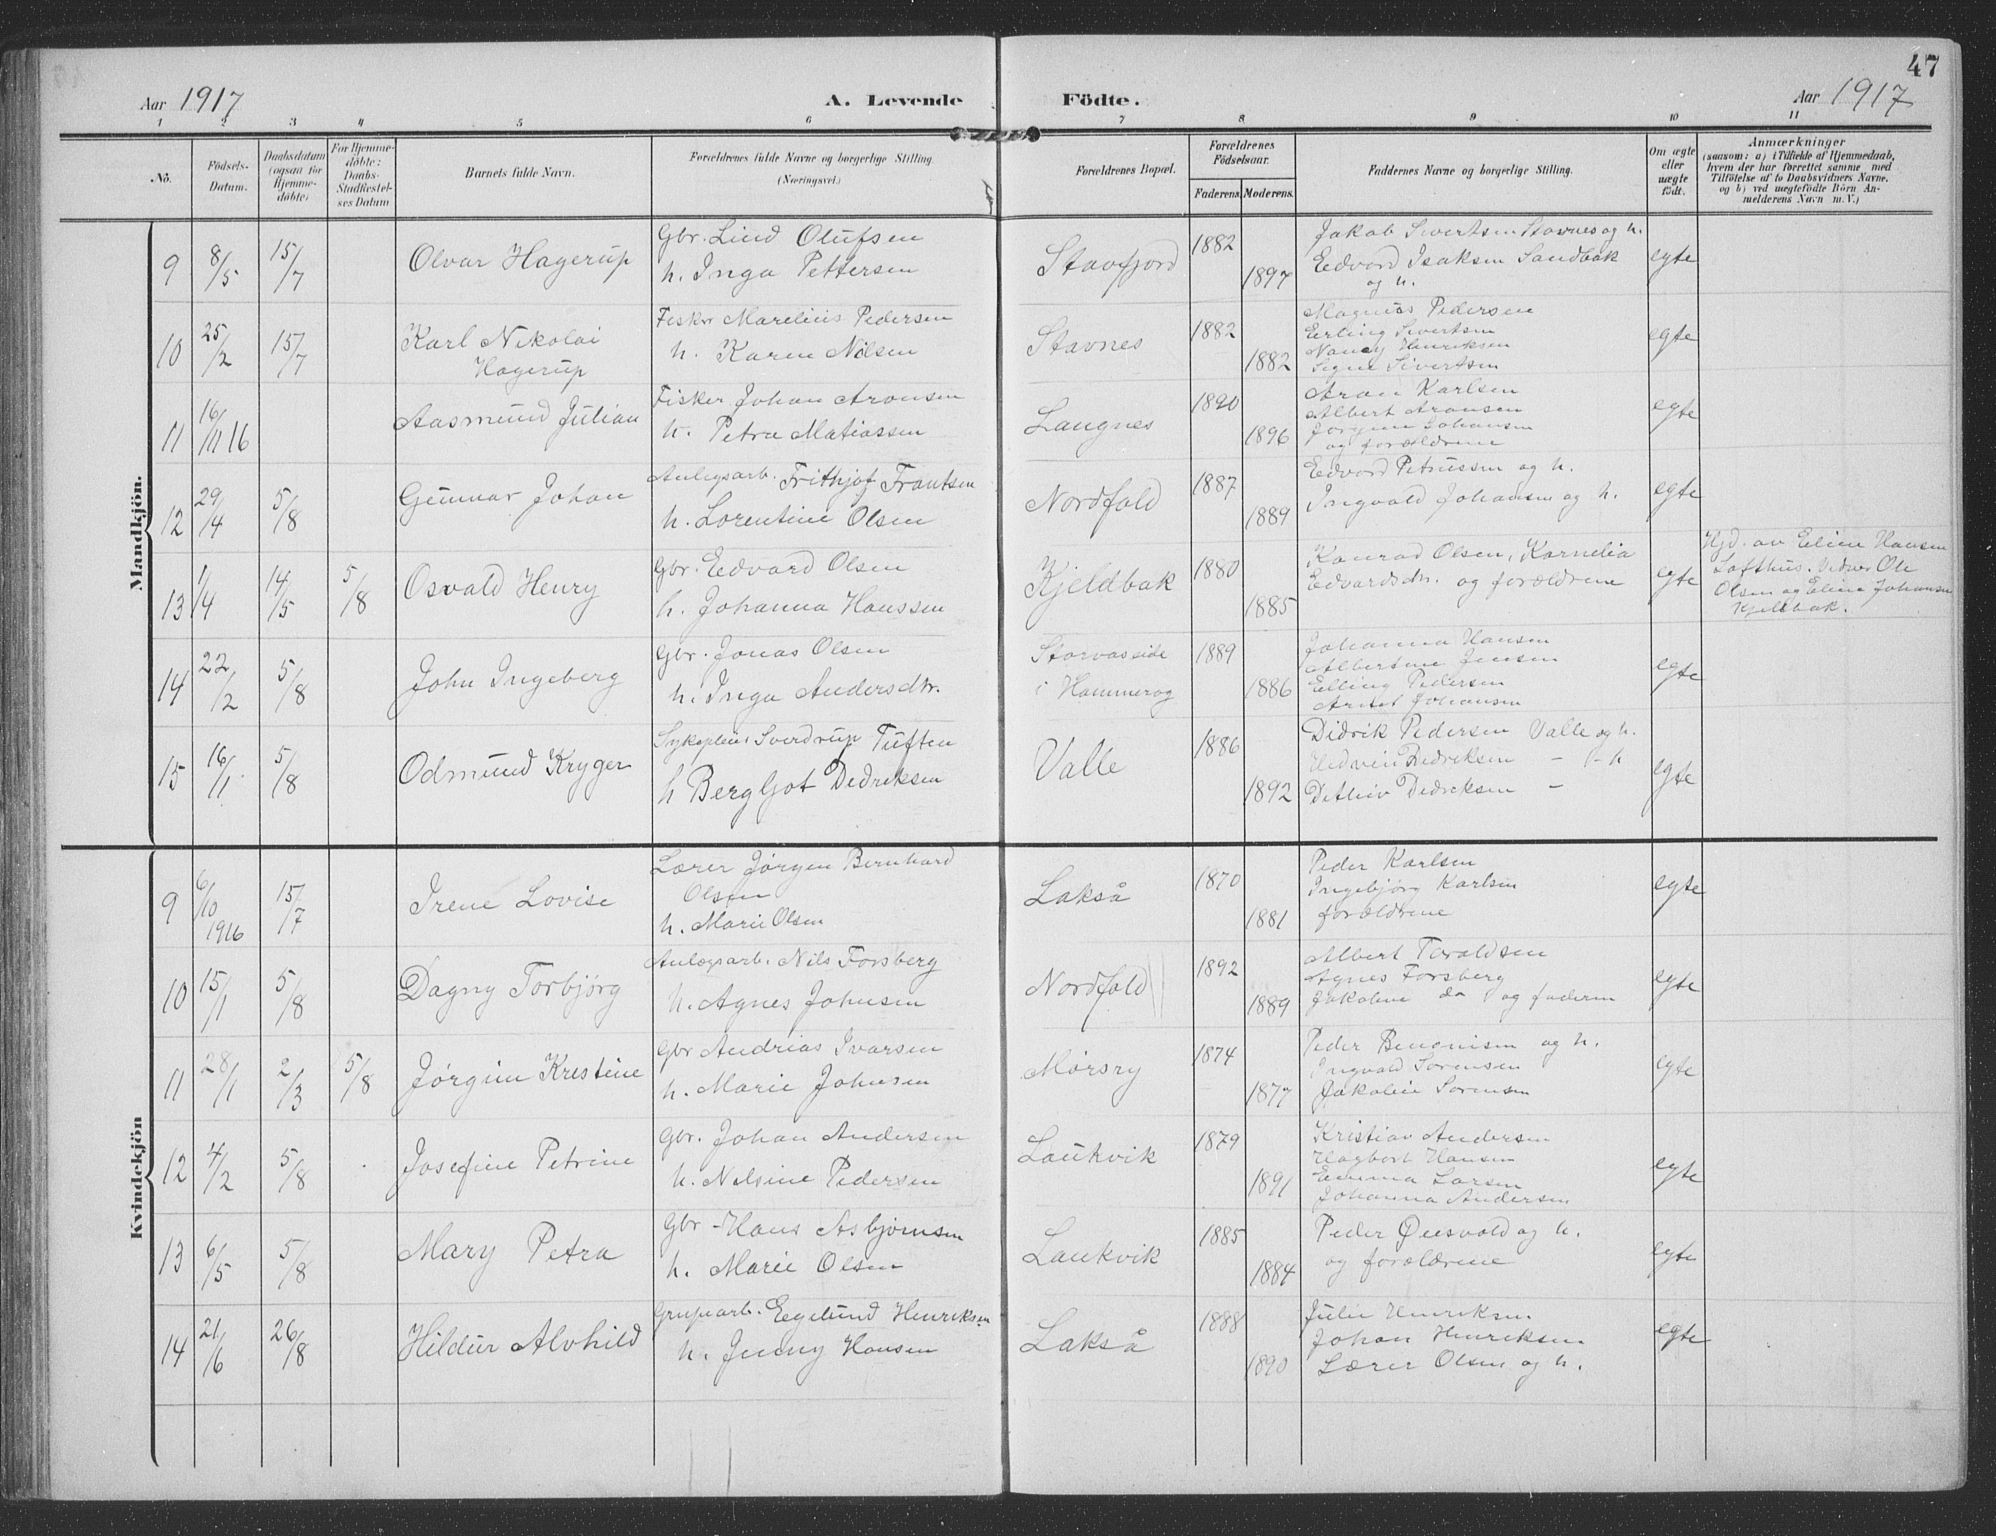 47
Aar 1917
A. Levende Födte.
Aar 1917
1 2 3 4 5 6 7 8 9 10 11
No.
Födsels-
Datum.
Daabsdatum
(ogsaa for
Hjemme-
döbte)
For Hjemme-
döbte:
Daabs-
Stadfæstel-
ses Datum
Barnets fulde Navn.
Forældrenes fulde Navne og borgerlige Stilling.
(Næringsvei.)
Forældrenes Bopæl.
Forældrenes
Födselsaar.
Faderens. Moderens.
Faddernes Navne og borgerlige Stilling.
Om ægte
eller
uægte
födt.
Anmærkninger
(saasom: a) i Tilfælde af Hjemmedaab,
hvem der har forrettet samme med
Tilföielse af to Daabsvidners Navne.
og b) ved uægtefödte Börn An-
melderens Navn m. V.)
Mandkjön.
9 8/5 15/7 Olvar Hagerup
Gbr. Lind Olufsen
h. Inga Pettersen
Stavfjord 1882 1897
Jakob Sivertsen Stavnes og h.
Edvard Isaksen Sandbak
og h.
egte
10 25/2 15/7 Karl Nikolai
Hagerup
Fisker Marelius Pedersen
h. Karen Nilsen
Stavnes 1882 1882
Magnus Pedersen
Erling Sivertsen
Nancy Henriksen
Signe Sivertsen
egte
11 16/11 16 Aasmund Julian
Fisker Johan Aronsen
h. Petra Matiassen
Langnes 1890 1896
Aron Karlsen
Albert Aronsen
Jørgine Johansen
og forældrene
egte
12 29/4 5/8 Gunnar Johan
Anlegsarb. Frithjof Frantsen
h. Lorentine Olsen
Nordfold 1887 1889
Edvard Petrussen og h.
Ingvald Johansen og h.
egte
13 1/4 14/5 5/8 Osvald Henry
Gbr. Edvard Olsen
h. Johanna Hanssen
Kjeldbak 1880 1885
Konrad Olsen, Kornelia
Edvardsdtr. og forældrene
egte
Hjd. av Eline Hansen
Lofthus. Vidner Ole
Olsen og Eline Johansen
Kjeldbak.
14 22/2 5/8 John Ingeberg
Gbr. Jonas Olsen
h. Inga Andersdtr.
Storvasseide
i Hammerø
1889 1886
Johanna Hansen
Albertine Jensen
Elling Pedersen
Johansen
egte
15 16/1 5/8 Odmund Kryger
Sykeplei. Sverdrup Tuften
h Bergljot Dedreksen
Valle 1886 1892
Didrik Pedersen Valle og h.
Hedvin Dedriksen – – h
Detlein Dedreksen –
egte
Kvindekjön
9 6/10 1916 15/7 Irene Lovise
Lærer Jørgen Bernhard
Olsen
h. Marie Olsen
Lakså 1870 1881
Peder Karlsen
Ingebjørg Karlsen
forældrene
egte
10 15/1 5/8 Dagny Torbjørg
Anlægsarb. Nils Forsberg
h. Agnes Johnsen
Nordfold 1892 1889
Albert Toraldsen
Agnes Forsberg
Jakobine do og faderen
egte
11 28/1 2/3 5/8 Jørgine Kristine
Gbr Andrias Ivarsen
h. Marie Johnsen
Mørsry 1874 1877
Peder Benonisen og h.
Ingvald Sorensen
Jakobine Sorensen
egte
12 4/2 5/8 Josefine Petrine
Gbr. Johan Andersen
h. Nilsine Pedersen
Laukvik 1879 1891
Kristian Andersen
Hagbart Hansen
Emma Larsen
Johanna Andersen
egte
13 6/5 5/8 Mary Petra
Gbr - Hans Asbjørnsen
h. Marie Olsen
Laukvik 1885 1884
Peder og h.
og forældrene
egte
14 21/6 26/8 Hildur Alvhild
Grupearb. Egelund Henriksen
h. Jenny Hansen
Lakså 1888 1890
Julie Henriksen.
Johan Henriksen
Lærer Olsen og h.
egte